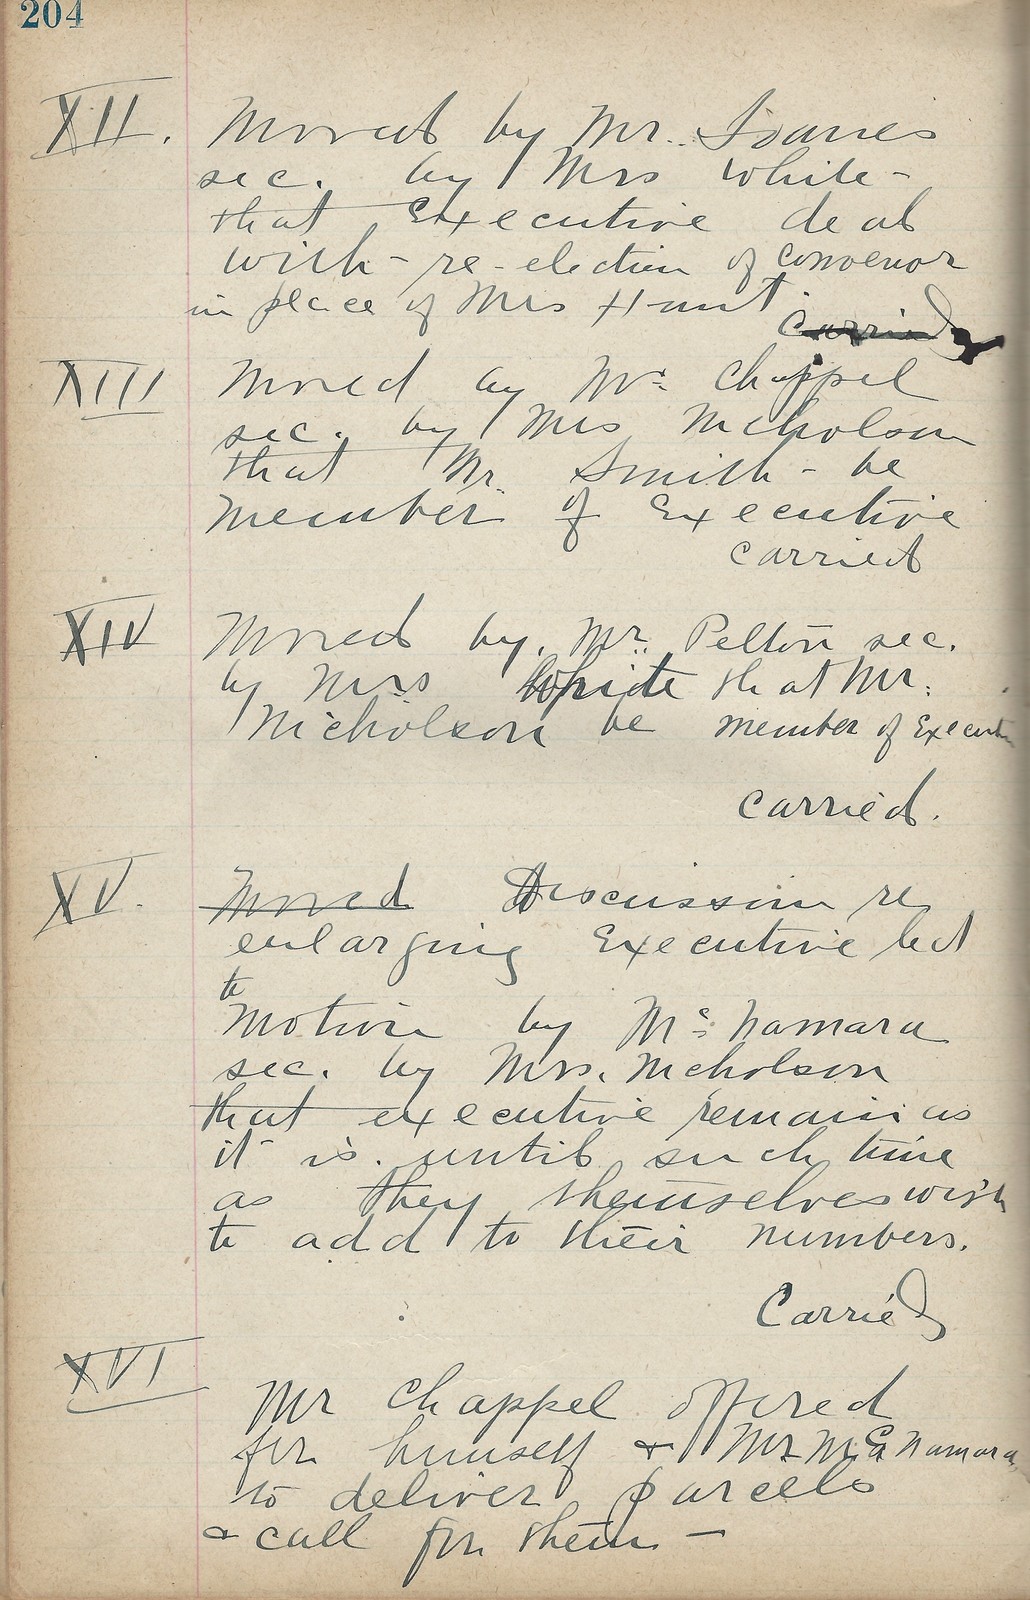 204
XII. Moved by Mr. Isaries
sec. by Mrs White -
that Executive deal
with - re-election of convenor
in place of Mrs Hunt.
Carried
XIII Moved by Mr. Chappel
sec. by Mrs Nicholson
that Mr. Smith - be
member of Executive
carried
XIV Moved by. Mr. Pelton sec.
by Mrs White that Mr.
Nicholson be member of Executive
carried.
XV. Moved Discussion re
enlarging Executive led
to
Motion by Mc Namara
sec. by Mrs. Nicholson
that executive remain as
it is. until such time
as they themselves wish
to add to their numbers.
Carried
XVI
Mr Chappel offered
for himself & Mr Mc Namara
to deliver parcels
& call for them -